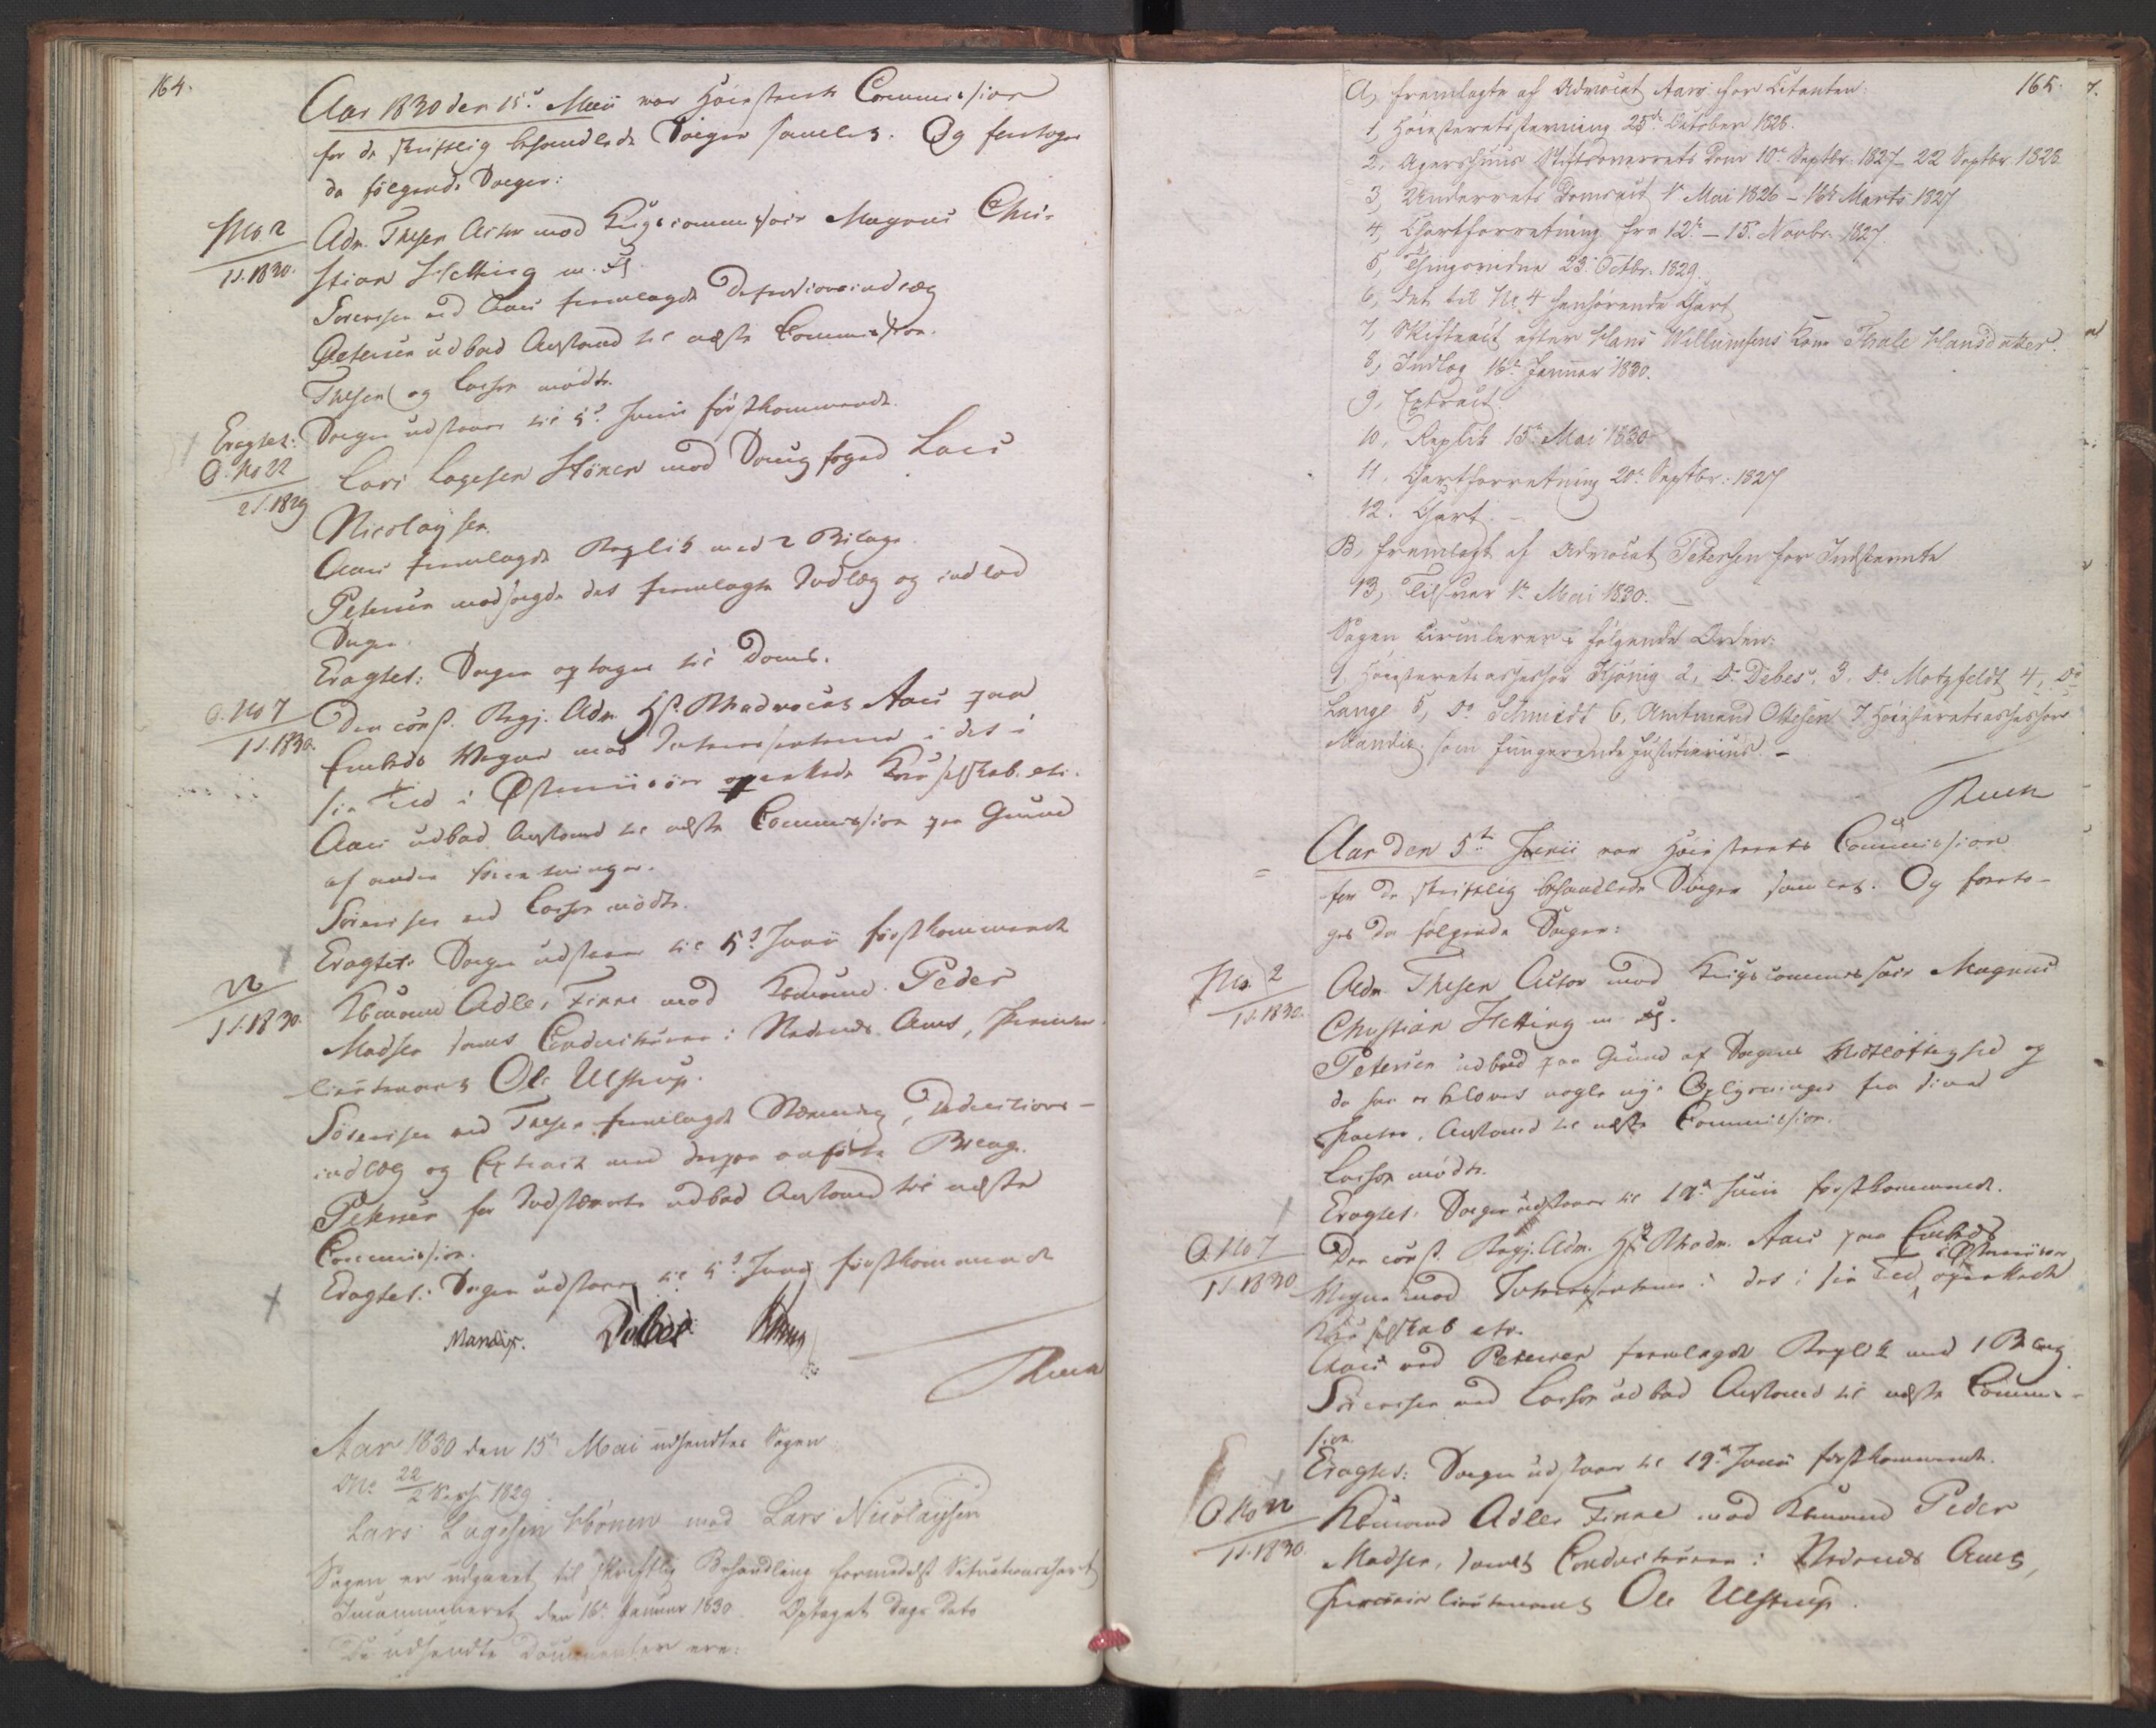 164.
Aar 1830 den 15de Maii var Høiesterets Commission
for de skriftlig behandlede Sager samlet. Og foretoges
da følgende Sager:
No 2
1 S. 1830.
Adv. Thesen Actor mod Krigscommissair Magnus Chri-
stian Hetting m. fl.
Sørensen ved Aars fremlagde Defensionsindlæg
Petersen udbad Anstand til næste Commission.
Thesen og Lasson mødte.
Eragtet: Sagen udstaaer til 5te Junii førstkommende.
O. No 22
2 S. 1829
Lars Lagesen Hönen mod Sougfoged Lars
Nicolaysen.
Aars fremlagde Replik med 2 Bilage.
Petersen modsagde det fremlagte Indlæg og indlod
Sagen.
Eragtet: Sagen optages til Doms.
O. No 7
1 S. 1830.
Den const. Regj. Adv. HstRAdvocat Aars paa
Embeds Vegne mod Interessenterne i det i
sin Tid i Østerriisöer oprettede Kaperselskab etc.
Aars udbad Anstand til næste Commission paa Grund
af andre Forretninger.
Sörensen ved Lasson mødte.
Eragtet: Sagen udstaaer til 5te Junii førstkommende
22
1 S. 1830.
Kbmand Adler Finne mod Kbmand Peder
Madsen samt Conducteuren i Nedenes Amt, Premier-
lieutenant Ole Ulstrup.
Sörensen ved Thesen fremlagde Stævning, Deductions-
indlæg og Extract med derpaa anførte Bilage.
Petersen for Indstævnte udbad Anstand til næste
Commission.
Eragtet: Sagen udstaaer til 5te Junii førstkommende
Mandix. Debes
Aar 1830 den 15de Mai udsendtes Sagen
No 22/2 Sess. 1829:
Lars Lagesen Hönen mod Lars Nicolaysen
Sagen er udgaaet til skriftlig Behandling formedelst Situationschart
Incammineret den 16de Januar 1830. Optaget Dags Dato
De udsendte Documenter ere:
165.
A, fremlagte af Advocat Aars for Citanten:
1, Høiesteretsstevning 25de October 1828.
2, Agershuus Stiftsoverrets Dom 10de Septbr. 1827 – 22 Septbr. 1828
3, Underrets Domsact 1ste Mai 1826 – 16de Marts 1827
4, Chartforretning fra 12te – 15de Novbr. 1827
5, Thingsvidne 23de Octbr. 1829.
6, det til No 4 henhørende Chart
7, Skifteact efter Hans Willumsens Kone Thale Hansdatter.
8, Indlæg 16de Januar 1830.
9, Extract.
10, Replik 15de Mai 1830
11, Chartforretning 20de Septbr. 1827
12. Chart. –
B, fremlagt af Advocat Petersen for Indstevnte
13, Tilsvar 1ste Mai 1830. –
Sagen circulerer i følgende Orden:
1, Høiesteretsassessor Kjönig 2, Do Debes, 3. Do Motzfeldt 4, Do
Lange 5, Do Schmidt 6, Amtmand Ottesen 7 Høiesteretsassessor
Mandix som fungerende Justitiarius. –
Aar den 5te Junii var Høiesterets Commission
for de skriftlig behandlede Sager samlet. Og foreto-
ges da følgende Sager:
No 2
1 S. 1830.
Adv. Thesen Actor mod Krigscommissair Magnus
Christian Hetting m. fl.
Petersen udbad paa Grund af Sagens Vidtløftighed og
da han er bleven nogle nye Oplysninger fra sine
Parter, Anstand til næste Commission.
Lasson mødte.
Eragtet: Sagen udstaaer til 19de Junii førstkommende.
O. No 7
1 S. 1830
Den const. Regj. Adv. HstRAdv. Aars paa Embeds
Vegne mod Interessenterne i det i sin Tid i Østerriisøer oprettede
Kaperselskab etc.
Aars ved Petersen fremlagde Replik med 1 Bilag.
Sörensen ved Lasson udbad Anstand til næste Commis-
sion.
Eragtet: Sagen udstaaer til 19de Junii førstkommende.
O. No 22
1 S. 1830.
Kbmand Adler Finne mod Kbmand Peder
Madsen, samt Conducteuren i Nedenes Amt,
Premierlieutenant Ole Ulstrup.